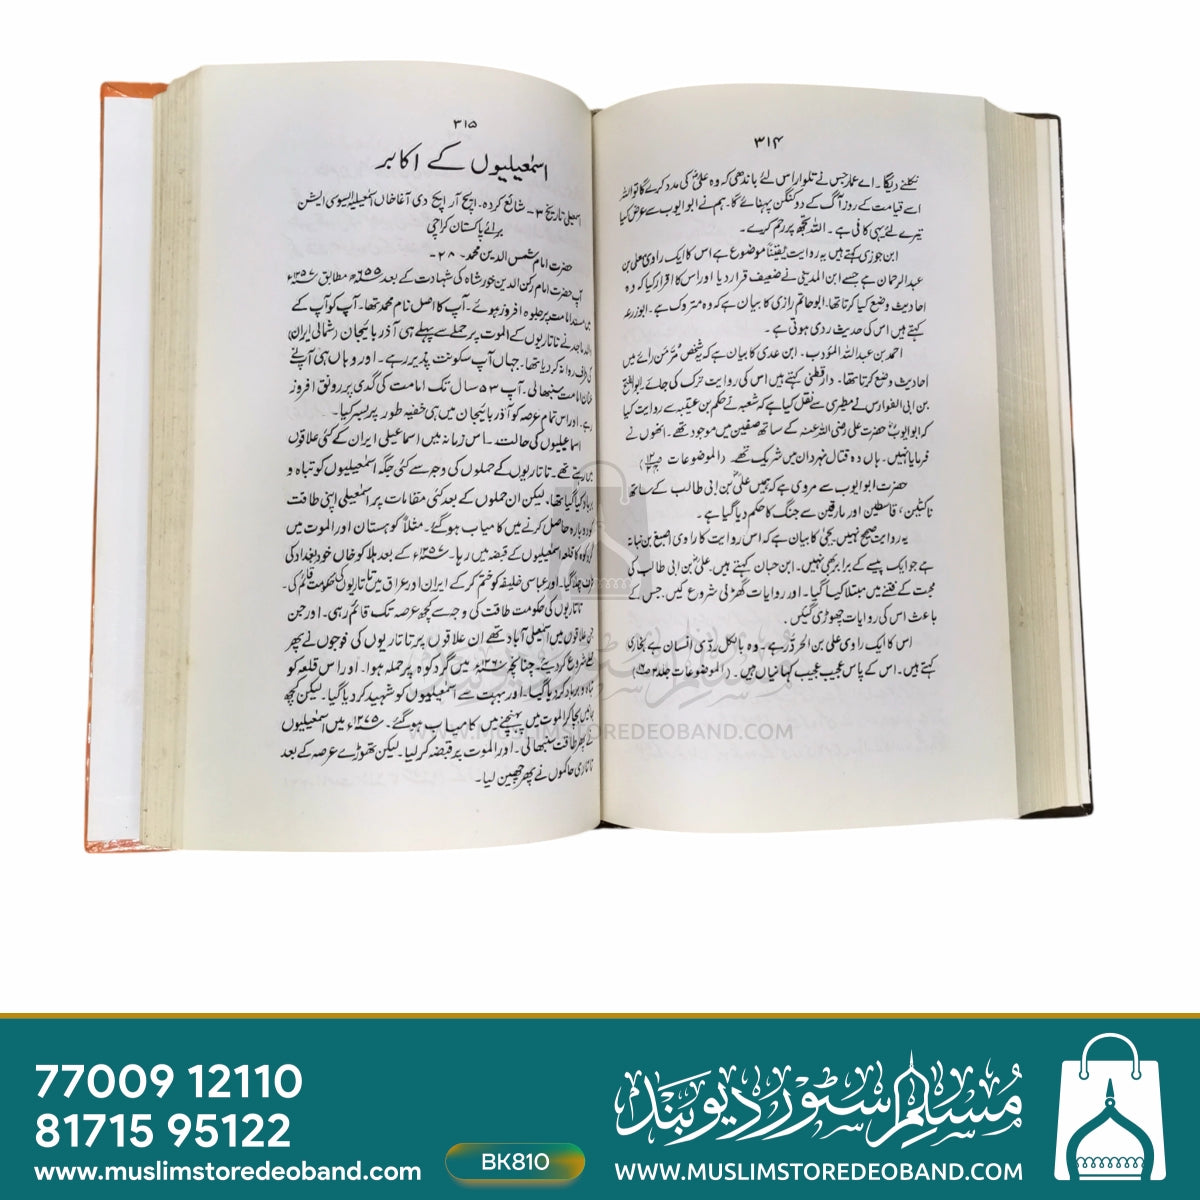 ۳۱۴
نکلنے دیگا۔ اے عمار جس نے تلوار اس لئے باندھی کہ وہ علیؓ کی مدد کرے گا تو اللہ
اسے قیامت کے روز آگ کے دو کنگن پہنائے گا۔ ہم نے ابو ایوب سے عرض کیا
تیرے لئے یہی کافی ہے۔ اللہ تجھ پر رحم کرے۔
ابن جوزی کہتے ہیں یہ روایت یقیناً موضوع ہے اس کا ایک راوی معلی بن
عبدالرحمان ہے جسے ابن المدینی نے ضعیف قرار دیا اور اس کا اقرار کیا کہ وہ
احادیث وضع کیا کرتا تھا۔ ابو حاتم رازی کا بیان ہے کہ وہ متروک ہے۔ ابوزرعہ
کہتے ہیں اس کی حدیث ردی ہوتی ہے۔
احمد بن عبداللہ المؤدب، ابن عدی کا بیان ہے کہ یہ شخص سُرَّمَن رائے میں
احادیث وضع کرتا تھا۔ دار قطنی کہتے ہیں اس کی روایت ترک کی جائے ابو الفتح
بن ابی الفوارس نے مطیری سے نقل کیا ہے کہ شعبہ نے حکم بن عتیبہ سے روایت کیا
کہ ابو ایوبؓ حضرت علی رضی اللہ عنہ کے ساتھ صفین میں موجود تھے۔ انھوں نے
فرمایا نہیں۔ ہاں وہ قتال نہروان میں شریک تھے۔ (الموضوعات
حضرت ابو ایوب سے مروی ہے کہ ہمیں علیؓ بن ابی طالب کے ساتھ
ناکثین، قاسطین اور مارقین سے جنگ کا حکم دیا گیا ہے۔
یہ روایت صحیح نہیں۔ یحییٰ کا بیان ہے کہ اس روایت کا راوی اصبغ بن نباتہ
ہے جو ایک پیسے کے برابر بھی نہیں۔ ابن حبان کہتے ہیں۔ علیؓ بن ابی طالب کی
محبت کے فتنے میں مبتلا کیا گیا۔ اور روایات گھڑنی شروع کیں جس کے
باعث اس کی روایات چھوڑی گئیں۔
اس کا ایک راوی علی بن الحزوّر ہے۔ وہ بالکل ردّی انسان ہے بخاری
کہتے ہیں۔ اس کے پاس عجیب عجیب کہانیاں ہیں۔ (الموضوعات جلد ۲
۳۱۵
اسمٰعیلیوں کے اکابر
اسمٰعیلی تاریخ ۳۔ شائع کردہ۔ ایچ آر ایچ دی آغاخان اسمٰعیلیہ ایسوسی ایشن
برائے پاکستان کراچی
حضرت امام شمس الدین محمد۔ ۲۸۔
آپ حضرت امام رکن الدین خورشاہ کی شہادت کے بعد ۶۵۵ھ مطابق ۱۲۵۷ء
میں مسند امامت پر جلوہ افروز ہوئے۔ آپ کا اصل نام محمد تھا۔ آپ کو آپ کے
والد ماجد نے تاتاریوں کے الموت پر حملے سے پہلے ہی آذربائیجان (شمالی ایران)
کی طرف روانہ کر دیا تھا۔ جہاں آپ سکونت پذیر رہے۔ اور وہاں ہی آپ نے
عنان امامت سنبھالی۔ آپ ۵۳ سال تک امامت کی گدی پر رونق افروز
رہے۔ اور اس تمام عرصہ کو آذربائیجان میں ہی خفیہ طور پر بسر کیا۔
اسماعیلیوں کی حالت۔ اس زمانہ میں اسماعیلی ایران کے کئی علاقوں
میں رہتے تھے۔ تاتاریوں کے حملوں کی وجہ سے کئی جگہ اسمٰعیلیوں کو تباہ و
برباد کیا گیا تھا۔ لیکن ان حملوں کے بعد کئی مقامات پر اسمٰعیلی اپنی طاقت
کو دوبارہ حاصل کرنے میں کامیاب ہو گئے۔ مثلاً کوہستان اور الموت میں
گردکوہ کا قلعہ اسمٰعیلیوں کے قبضہ میں رہا۔ ۱۲۵۷ء کے بعد ہلاکو خاں خود بغداد کی
طرف چلا گیا۔ اور عباسی خلیفہ کو ختم کر کے ایران اور عراق میں تاتاریوں کی حکومت قائم کی۔
تاتاریوں کی حکومت طاقت کی وجہ سے کچھ عرصہ تک قائم رہی۔ اور جن
جن علاقوں میں اسمٰعیلی آباد تھے ان علاقوں پر تاتاریوں کی فوجوں نے پھر
حملے شروع کر دیئے۔ چنانچہ ۱۲۶۰ء میں گردکوہ پر حملہ ہوا۔ اور اس قلعہ کو
تباہ و برباد کر دیا گیا۔ اور بہت سے اسمٰعیلیوں کو شہید کر دیا گیا۔ لیکن کچھ
جانیں بچا کر الموت میں پہنچنے میں کامیاب ہو گئے۔ ۱۲۷۵ء میں اسمٰعیلیوں
نے پھر طاقت سنبھالی۔ اور الموت پر قبضہ کر لیا۔ لیکن تھوڑے عرصہ کے بعد
تاتاری حاکموں نے پھر چھین لیا۔
مسلم سٹور دیوبند
WWW.MUSLIMSTOREDEOBAND.COM
77009 12110
81715 95122
www.muslimstoredeoband.com
BK810
مسلم سٹور دیوبند
WWW.MUSLIMSTOREDEOBAND.COM